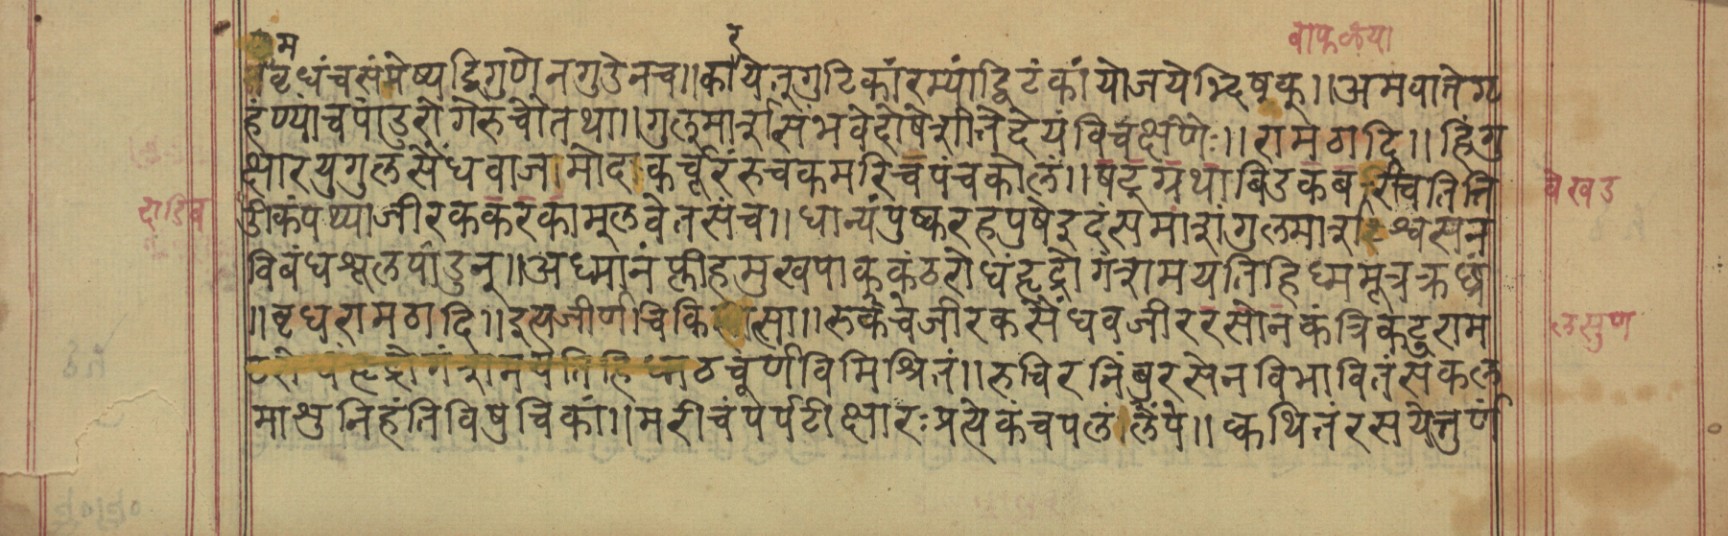 वाफळया
वृधंचसंमेष्यद्विगुणेनगुडेनच॥कारयेत्गुटिकांरम्यांद्विटंकांयोजयेद्भिषक्॥अमवातेग्र
हंण्यांचपांडुरोगेरुचौतथा॥गुलुमार्त्रासंभवेदोषेशीतेदेयंविचक्षणैः॥रामठादि॥हिंगु
क्षारयुगुलसैंधवाजामोदाकर्चूरंरुचकमरिचपंचकोलं॥षट्ग्रंथाबिडकबरीचतिंति
वेखड
दाडिव
डीकंपथ्याजीरककरकामूलवेतसंच॥धान्यंपुष्करहपुषेइदंसमांशंगुलमार्शःश्वसन
विबंधश्रूलपांडुनु॥अध्मानंप्लीहमुखपाककंठरोधंहृद्रोगंशमयतिहिध्ममूत्रक्रछ्रं
॥वृधरामठादि॥इत्यजीर्णचिकित्सा॥रुकेचजीरकसैंधवजीररसोनकंत्रिकटुराम
लसुण
ठचूर्णविमिश्रितं॥रुचिरनिंबुरसेनविभावितंसकल
माशुनिहंतिविषुचिकां॥मरीचंपर्पटीक्षारःप्रत्येकंचपलं॥क्वथितंरसयेत्तुर्णं